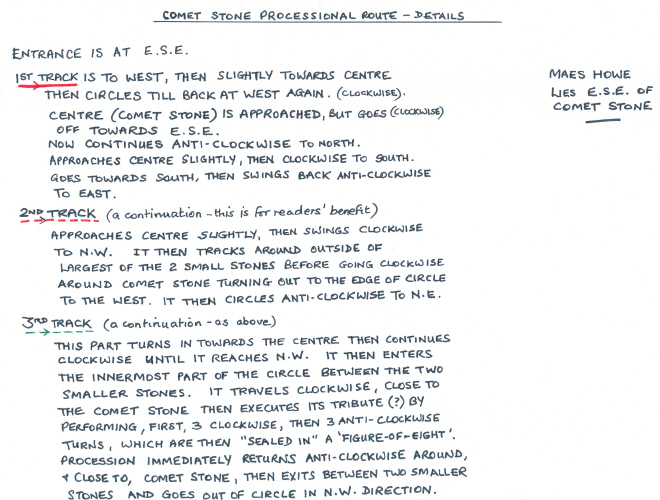 COMET STONE PROCESSIONAL ROUTE – DETAILS
ENTRANCE IS AT E.S.E.
1ST TRACK IS TO WEST, THEN SLIGHTLY TOWARDS CENTRE
THEN CIRCLES TILL BACK AT WEST AGAIN. (CLOCKWISE).
CENTRE (COMET STONE) IS APPROACHED, BUT GOES (CLOCKWISE)
OFF TOWARDS E.S.E.
NOW CONTINUES ANTI-CLOCKWISE TO NORTH.
APPROACHES CENTRE SLIGHTLY, THEN CLOCKWISE TO SOUTH.
GOES TOWARDS SOUTH, THEN SWINGS BACK ANTI-CLOCKWISE
TO EAST.
MAES HOWE
LIES E.S.E. OF
COMET STONE
2ND TRACK (a continuation – this is for readers' benefit)
APPROACHES CENTRE SLIGHTLY, THEN SWINGS CLOCKWISE
TO N.W. IT THEN TRACKS AROUND OUTSIDE OF
LARGEST OF THE 2 SMALL STONES BEFORE GOING CLOCKWISE
AROUND COMET STONE TURNING OUT TO THE EDGE OF CIRCLE
TO THE WEST. IT THEN CIRCLES ANTI-CLOCKWISE TO N.E.
3RD TRACK (a continuation – as above)
THIS PART TURNS IN TOWARDS THE CENTRE THEN CONTINUES
CLOCKWISE UNTIL IT REACHES N.W. IT THEN ENTERS
THE INNERMOST PART OF THE CIRCLE BETWEEN THE TWO
SMALLER STONES. IT TRAVELS CLOCKWISE, CLOSE TO
THE COMET STONE THEN EXECUTES ITS TRIBUTE (?) BY
PERFORMING, FIRST, 3 CLOCKWISE, THEN 3 ANTI-CLOCKWISE
TURNS, WHICH ARE THEN "SEALED IN" A 'FIGURE-OF-EIGHT'.
PROCESSION IMMEDIATELY RETURNS ANTI-CLOCKWISE AROUND,
& CLOSE TO, COMET STONE, THEN EXITS BETWEEN TWO SMALLER
STONES AND GOES OUT OF CIRCLE IN N.W. DIRECTION.